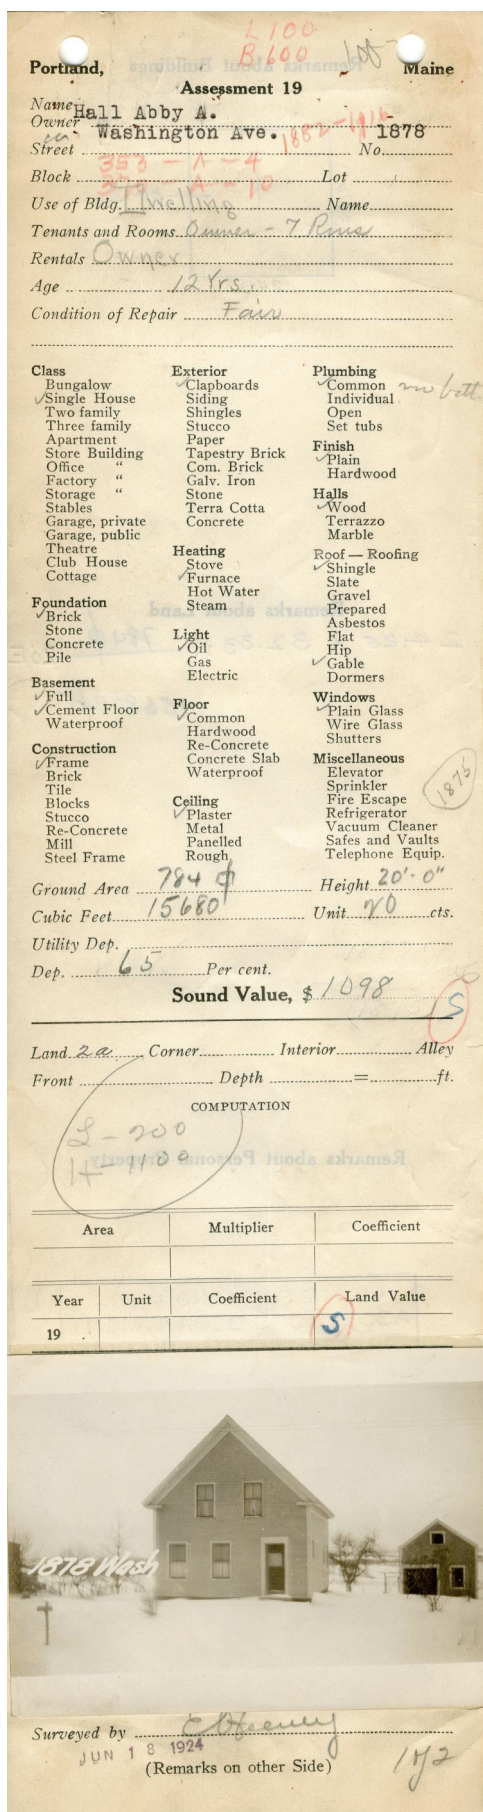 L 100
B 600
100
Portland, Maine
Assessment 19
Name Hall Abby A.
Owner
on Washington Ave. 1882-1916 1878
Street No.
353 - A - 4
Block Lot
379 - A - 10
Use of Bldg. Dwelling Name
Tenants and Rooms Owner - 7 Rms
Rentals Owner
Age 12 Yrs.
Condition of Repair Fair
Class
Bungalow
✓Single House
Two family
Three family
Apartment
Store Building
Office "
Factory "
Storage "
Stables
Garage, private
Garage, public
Theatre
Club House
Cottage
Foundation
✓Brick
Stone
Concrete
Pile
Basement
✓Full
✓Cement Floor
Waterproof
Construction
✓Frame
Brick
Tile
Blocks
Stucco
Re-Concrete
Mill
Steel Frame
Exterior
✓Clapboards
Siding
Shingles
Stucco
Paper
Tapestry Brick
Com. Brick
Galv. Iron
Stone
Terra Cotta
Concrete
Heating
Stove
✓Furnace
Hot Water
Steam
Light
✓Oil
Gas
Electric
Floor
✓Common
Hardwood
Re-Concrete
Concrete Slab
Waterproof
Ceiling
✓Plaster
Metal
Panelled
Rough
Plumbing
✓Common no bath
Individual
Open
Set tubs
Finish
✓Plain
Hardwood
Halls
✓Wood
Terrazzo
Marble
Roof — Roofing
✓Shingle
Slate
Gravel
Prepared
Asbestos
Flat
Hip
✓Gable
Dormers
Windows
✓Plain Glass
Wire Glass
Shutters
Miscellaneous
Elevator
Sprinkler
Fire Escape
Refrigerator
Vacuum Cleaner
Safes and Vaults
Telephone Equip.
1875
Ground Area 784 Height 20'-0"
Cubic Feet 15680 Unit 20 cts.
Utility Dep.
Dep. 65 Per cent.
Sound Value, $ 1098 S
Land 2a Corner Interior Alley
Front Depth = ft.
COMPUTATION
L - 200
H - 1100
Area Multiplier Coefficient
Year Unit Coefficient Land Value
19 S
1878 Wash
Surveyed by
JUN 18 1924
(Remarks on other Side)
1 of 2